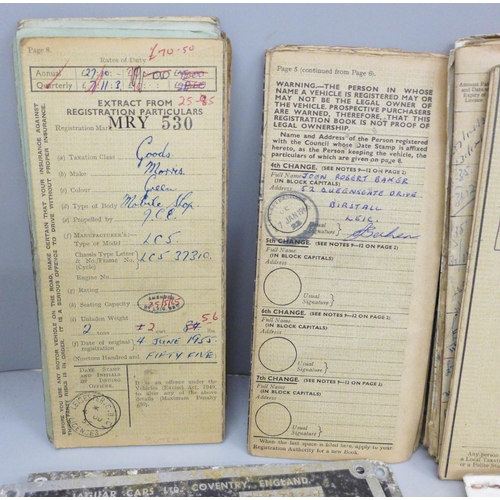 Page 8.
£70-50
Rates of Duty
Annual
Quarterly
25-85
EXTRACT FROM
REGISTRATION PARTICULARS
Registration Mark
MRY 530
(a) Taxation Class Goods
(b) Make Morris
(c) Colour Green
(d) Type of Body Mobile Shop.
(e) Propelled by I.C.E.
(f) Manufacturer's
Type or Model LC5
Chassis Type Letter
& No./Frame No. LC5 37310.
(Cycle)
Engine No.
(g) Rating
(h) Seating Capacity
(i) Unladen Weight
(j) Date of original
registration 4 JUNE 1955
Nineteen Hundred and FIFTY FIVE.
DATE STAMP
AND INITIALS
BY ISSUING
OFFICER.
It is an offence under the
Vehicles (Excise) Act, 1949,
to alter any of the above
details (Maximum Penalty
BEFORE YOU USE ANY MOTOR VEHICLE ON THE ROAD, MAKE CERTAIN THAT YOUR INSURANCE AGAINST
IT IS A SERIOUS OFFENCE TO DRIVE WITHOUT PROPER INSURANCE.
Page 5 (continued from Page 6).
WARNING.—THE PERSON IN WHOSE
NAME A VEHICLE IS REGISTERED MAY OR
MAY NOT BE THE LEGAL OWNER OF
THE VEHICLE. PROSPECTIVE PURCHASERS
ARE WARNED, THEREFORE, THAT THIS
REGISTRATION BOOK IS NOT PROOF OF
LEGAL OWNERSHIP.
Name and Address of the Person registered
with the Council whose Date Stamp is affixed
hereto, as the Person keeping the vehicle, the
particulars of which are given on page 8.
4th CHANGE. (SEE NOTES 9—12 ON PAGE 2)
Full Name JOHN ROBERT BAKER
(IN BLOCK CAPITALS)
Address 52 QUEENSGATE DRIVE
BIRSTALL
LEIC.
Usual
Signature
5th CHANGE. (SEE NOTES 9—12 ON PAGE 2)
Full Name
(IN BLOCK CAPITALS)
Address
Usual
Signature
6th CHANGE. (SEE NOTES 9—12 ON PAGE 2)
Full Name
(IN BLOCK CAPITALS)
Address
Usual
Signature
7th CHANGE. (SEE NOTES 9—12 ON PAGE 2)
Full Name
(IN BLOCK CAPITALS)
Address
Usual
Signature
When the last space is filled here, apply to
Registration Authority for a new Book.
JAGUAR CARS LTD. COVENTRY, ENGLAND.